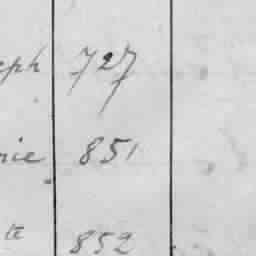 eph 727
rie 851
te 852